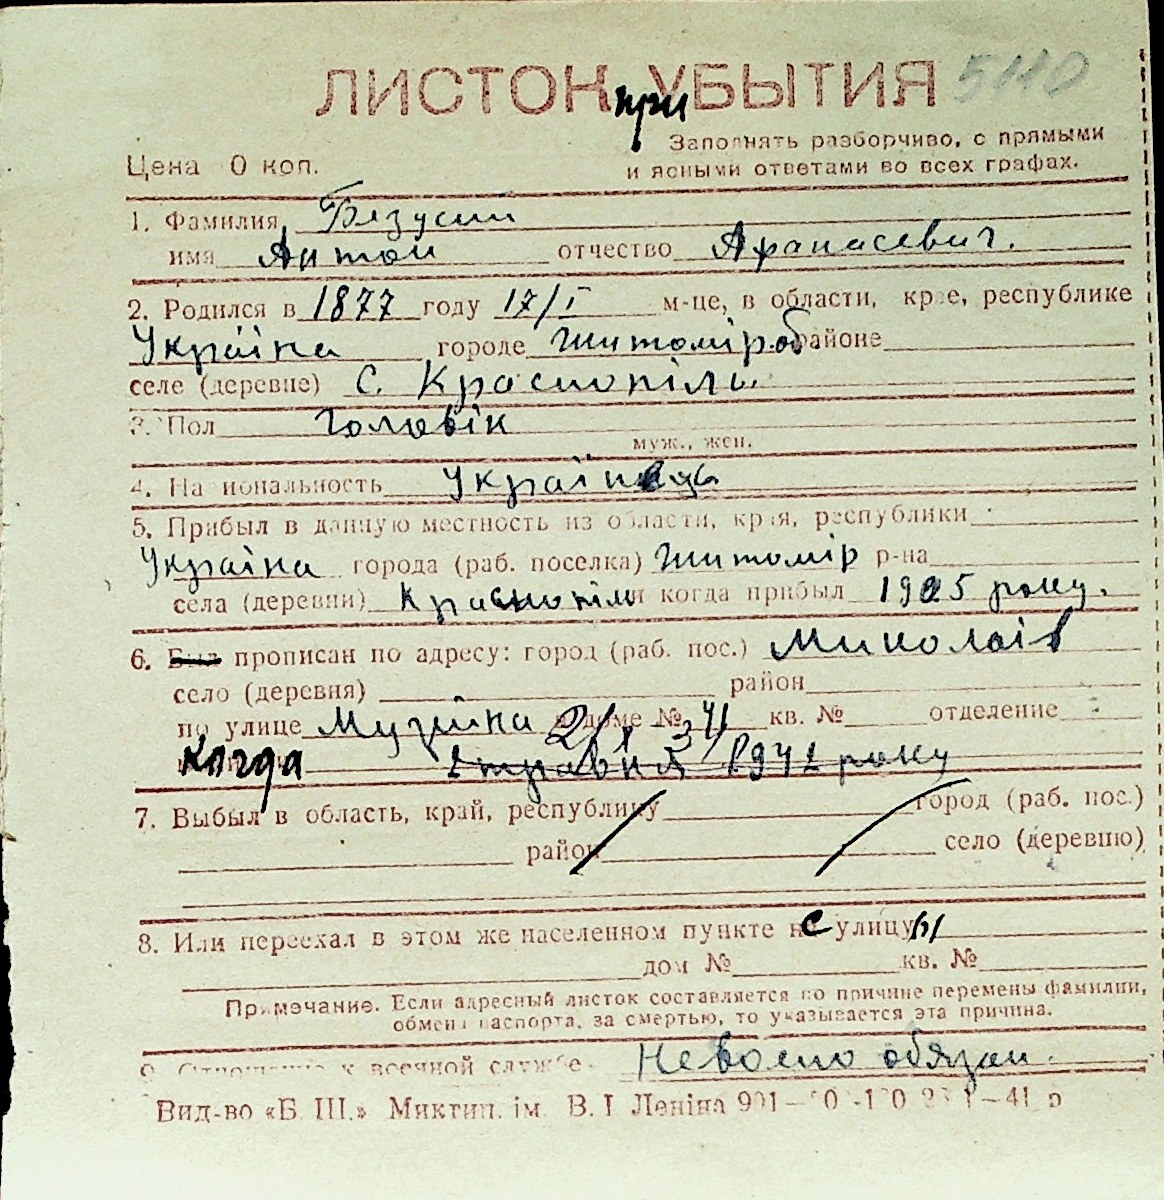 ЛИСТОК при УБЫТИЯ 5110
Заполнять разборчиво, с прямыми
Цена 0 коп. и ясными ответами во всех графах.
1. Фамилия Безусий
имя Антон отчество Афанасевич.
2. Родился в 1877 году 17/I м-це, в области, крае, республике
Україна городе Житомір об. районе
селе (деревне) с. Краснопіль.
3. Пол Чоловік
муж., жен.
4. Национальность Українець
5. Прибыл в данную местность из области, края, республики
Україна города (раб. поселка) Житомір р-на
села (деревни) Краснопіль и когда прибыл 1905 року.
6. Был прописан по адресу: город (раб. пос.) Миколаів
село (деревня) район
по улице Музійна 2/1 в доме № 34 кв. № отделение
Когда 2 травня 1942 року
7. Выбыл в область, край, республику город (раб. пос.)
район село (деревню)
8. Или переехал в этом же населенном пункте с улицы
дом № кв. №
Примечание. Если адресный листок составляется по причине перемены фамилии,
обмена паспорта, за смертью, то указывается эта причина.
9. Отношение к военной службе. Невоено обязан.
Вид-во «Б. Ш.» Миктип. ім. В. І. Леніна